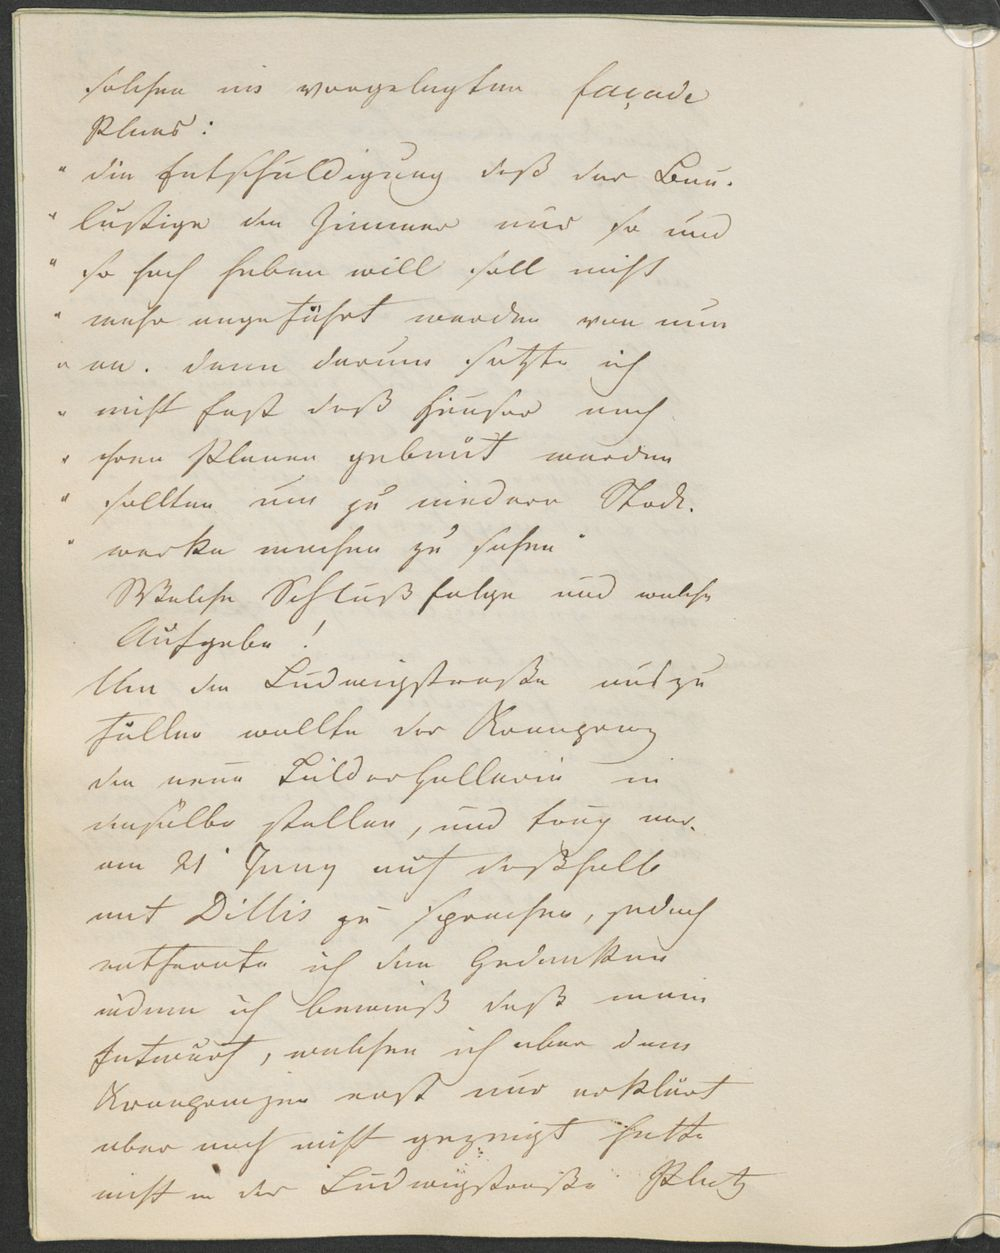 solchen im vorgelegten façade
Plans:
" die Entschuldigung daß der Bau-
" lustige die Zimmer nur so und
" so hoch haben will soll nicht
" mehr angeführt werden von nun
" an. denn darum setzte ich
" nicht fest daß Häuser nach
" ihren Planen gebaut werden
" sollten um zu niedere Stock-
" werke machen zu sehen"
Welche Schlußfolge und welche
Aufgabe!
Um die Ludwigstraße auszu
füllen wollte der Kronprinz
die neue Bilder Gallerie in
dieselbe stellen, und trug mir
am 21' Juny auf deßhalb
mit Dillis zu sprechen, jedoch
entfernte ich den Gedanken
indem ich bewieß daß mein
Entwurf, welchen ich aber dem
Kronprinzen erst nur erklärt
aber noch nicht gezeigt hatte
nicht in der Ludwigstraße Platz